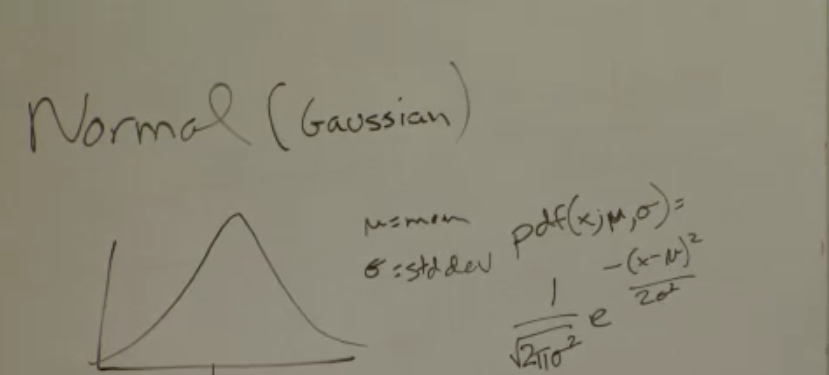 Normal (Gaussian)
μ=mean
σ=std dev
pdf(x;μ,σ)=
1/√2πσ² e -(x-μ)²/2σ²